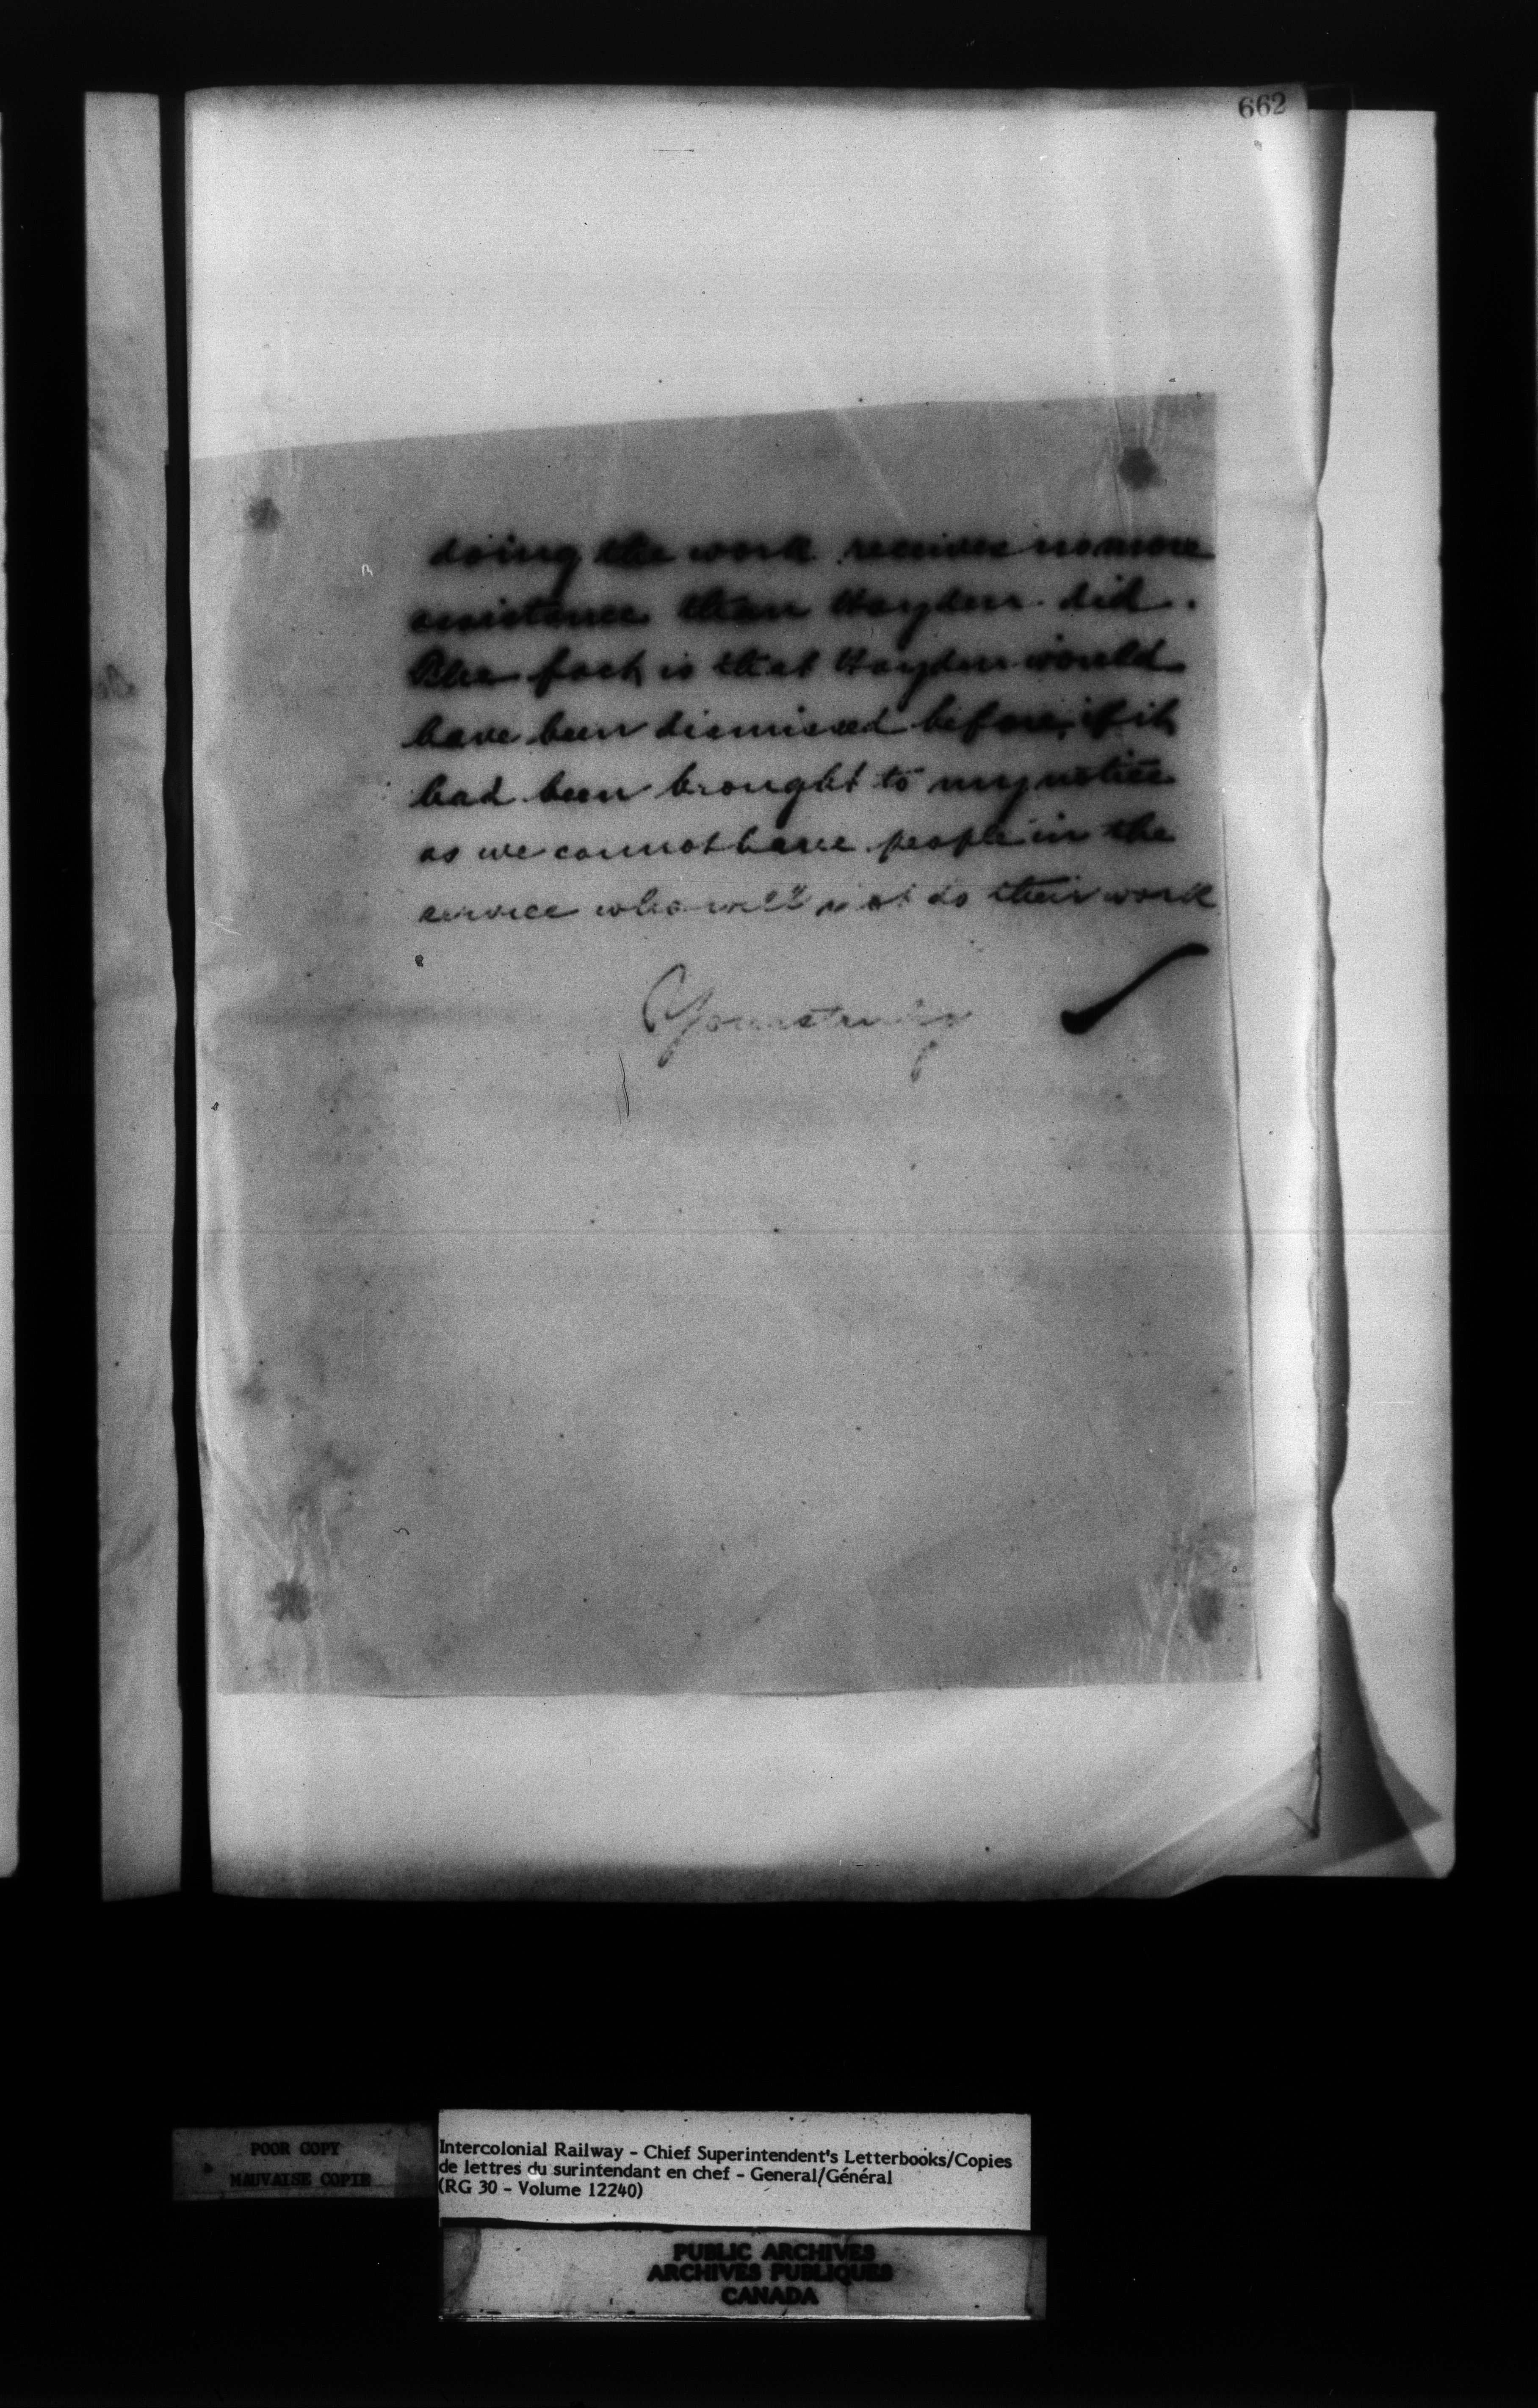 662
doing the work receives no more
assistance than Hayden did.
The fact is that Hayden would
have been dismissed before, if it
had been brought to my notice
as we cannot have people in the
service who will not do their work
Yours truly
POOR COPY
MAUVAISE COPIE
Intercolonial Railway - Chief Superintendent's Letterbooks/Copies
de lettres du surintendant en chef - General/Général
(RG 30 - Volume 12240)
PUBLIC ARCHIVES
ARCHIVES PUBLIQUES
CANADA